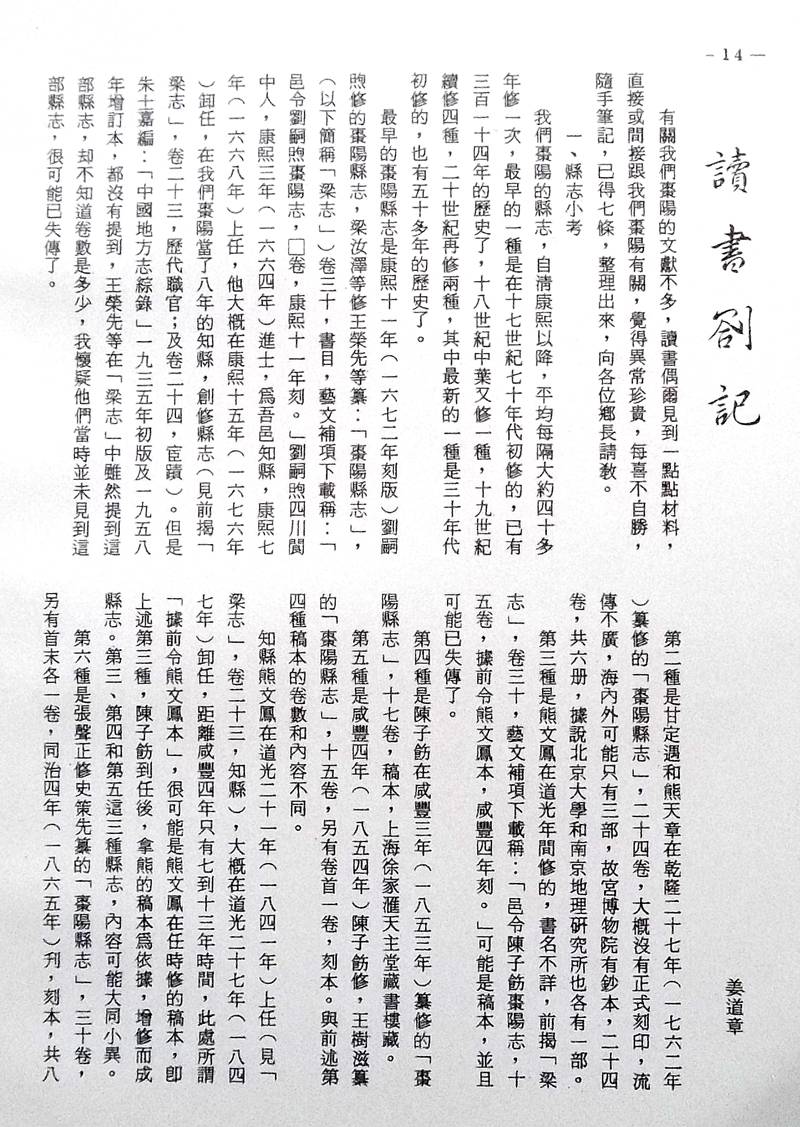 －14－
讀書劄記
姜道章
有關我們棗陽的文獻不多，讀書偶爾見到一點點材料，
直接或間接跟我們棗陽有關，覺得異常珍貴，每喜不自勝，
隨手筆記，已得七條，整理出來，向各位鄉長請教。
一、縣志小考
我們棗陽的縣志，自清康熙以降，平均每隔大約四十多
年修一次，最早的一種是在十七世紀七十年代初修的，已有
三百一十四年的歷史了，十八世紀中葉又修一種，十九世紀
續修四種，二十世紀再修兩種，其中最新的一種是三十年代
初修的，也有五十多年的歷史了。
最早的棗陽縣志是康熙十一年（一六七二年刻版）劉嗣
煦修的棗陽縣志，梁汝澤等修王榮先等纂：「棗陽縣志」，
（以下簡稱「梁志」）卷三十，書目，藝文補項下載稱：「
邑令劉嗣煦棗陽志，□卷，康熙十一年刻。」劉嗣煦四川閬
中人，康熙三年（一六六四年）進士，爲吾邑知縣，康熙七
年（一六六八年）上任，他大概在康熙十五年（一六七六年
）卸任，在我們棗陽當了八年的知縣，創修縣志（見前揭「
梁志」，卷二十三，歷代職官；及卷二十四，宦蹟）。但是
朱士嘉編：「中國地方志綜錄」一九三五年初版及一九五八
年增訂本，都沒有提到，王榮先等在「梁志」中雖然提到這
部縣志，却不知道卷數是多少，我懷疑他們當時並未見到這
部縣志，很可能已失傳了。
第二種是甘定遇和熊天章在乾隆二十七年（一七六二年
）纂修的「棗陽縣志」，二十四卷，大概沒有正式刻印，流
傳不廣，海內外可能只有三部，故宮博物院有鈔本，二十四
卷，共六册，據說北京大學和南京地理研究所也各有一部。
第三種是熊文鳳在道光年間修的，書名不詳，前揭「梁
志」，卷三十，藝文補項下載稱：「邑令陳子飭棗陽志，十
五卷，據前令熊文鳳本，咸豐四年刻。」可能是稿本，並且
可能已失傳了。
第四種是陳子飭在咸豐三年（一八五三年）纂修的「棗
陽縣志」，十七卷，稿本，上海徐家滙天主堂藏書樓藏。
第五種是咸豐四年（一八五四年）陳子飭修，王樹滋纂
的「棗陽縣志」，十五卷，另有卷首一卷，刻本。與前述第
四種稿本的卷數和內容不同。
知縣熊文鳳在道光二十一年（一八四一年）上任（見「
梁志」，卷二十三，知縣），大概在道光二十七年（一八四
七年）卸任，距離咸豐四年只有七到十三年時間，此處所謂
「據前令熊文鳳本」，很可能是熊文鳳在任時修的稿本，卽
上述第三種，陳子飭到任後，拿熊的稿本爲依據，增修而成
縣志。第三、第四和第五這三種縣志，內容可能大同小異。
第六種是張聲正修史策先纂的「棗陽縣志」，三十卷，
另有首末各一卷，同治四年（一八六五年）刋，刻本，共八